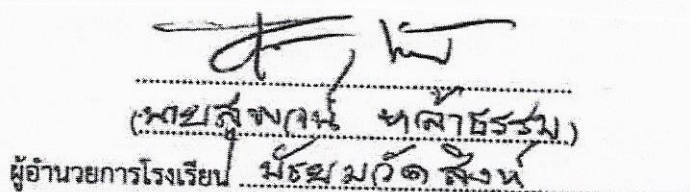 (นายสุพจน์ หล้าธรรม)
ผู้อำนวยการโรงเรียน มัธยมวัดสิงห์